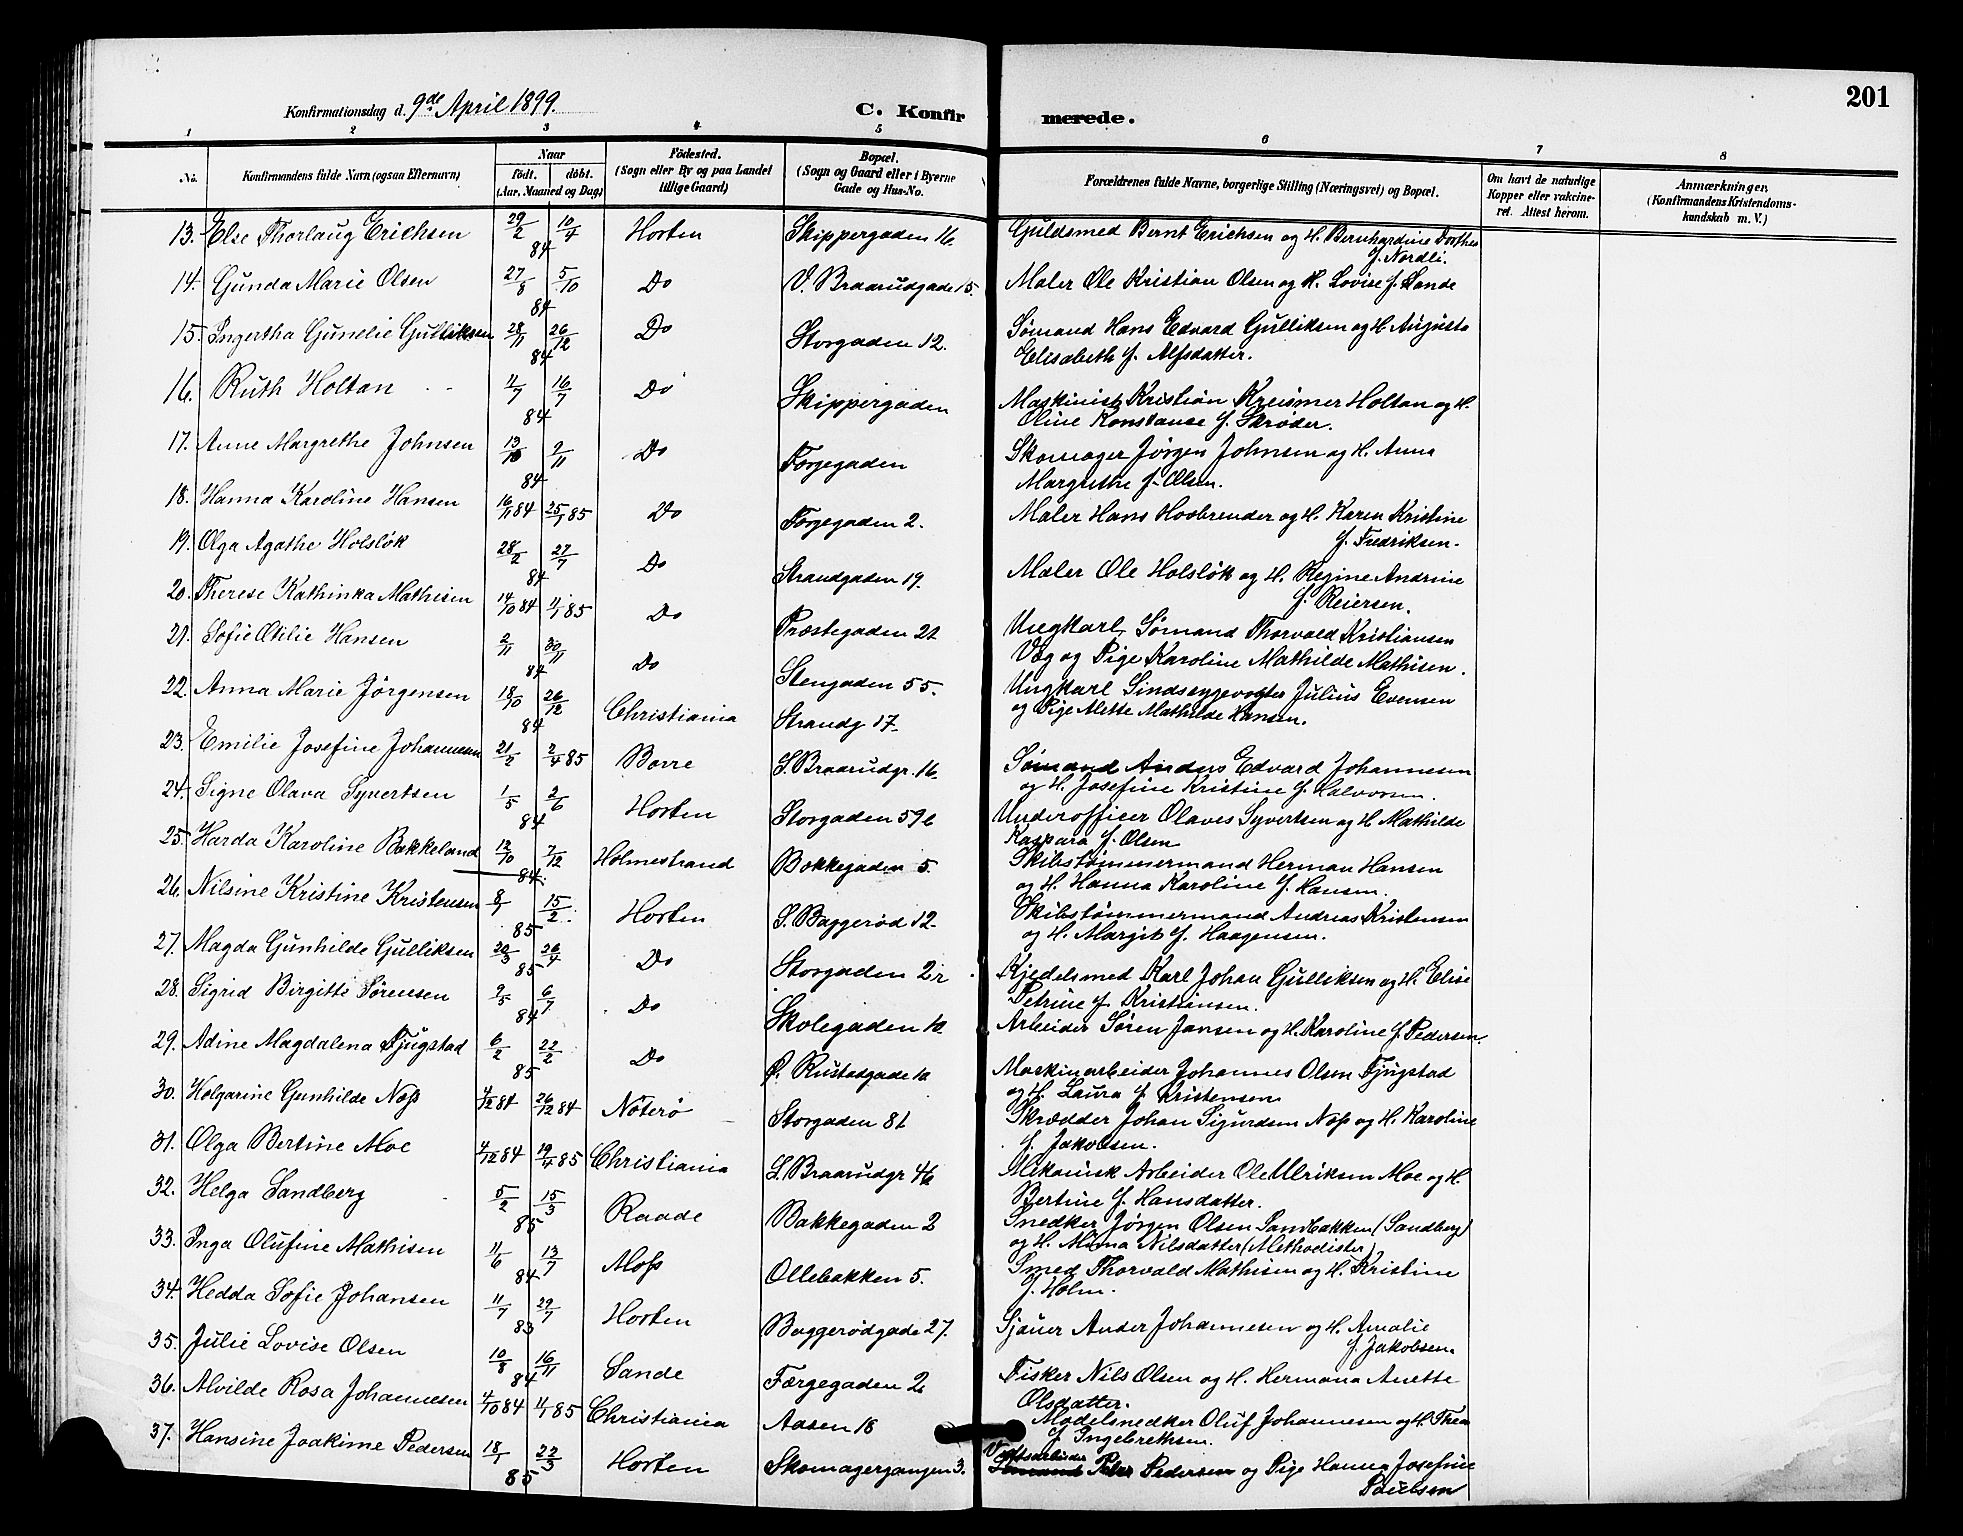 201
Konfirmationsdag d. 9de April 1899.
C. Konfirmerede.
1 2 3 4 5 6 7 8
No.
Konfirmandens fulde Navn (ogsaa Efternavn)
Naar
födt. döbt.
(Aar, Maaned og Dag)
Födested.
(Sogn eller By og paa Landet
tillige Gaard)
Bopæl.
(Sogn og Gaard eller i Byerne
Gade og Hus-No.
Forældrenes fulde Navne, borgerlige Stilling (Næringsvei) og Bopæl.
Om havt de naturlige
Kopper eller vakcine-
ret. Attest herom.
Anmærkninger.
(Konfirmandens Kristendoms-
kundskab m. V.)
13. Else Thorlaug Erichsen 29/2 10/4 84 Horten Skippergaden 16 Guldsmed Bernt Erichsen og H. Bernhardine Dorthea
f. Nordli.
14. Gunda Marie Olsen 27/8 5/10 84 Do V. Braarudgade 15. Maler Ole Kristian Olsen og H. Lovise f. Sande
15. Ingertha Gunelie Gulliksen 28/11 26/12 84 Do Storgaden 12. Sømand Hans Edvard Gulliksen og H. Augusta
Elisabeth f. Alfsdatter.
16. Ruth Holtan 11/7 16/7 84 Do Skippergaden Maskinist Kristian Kreismer Holtan og H.
Oline Konstanse f. Skrøder.
17. Anne Margrethe Johnsen 13/10 9/11 84 Do Færgegaden Skomager Jørgen Johnsen og H. Anna
Margrethe f. Olsen.
18. Hanna Karoline Hansen 16/11 84 25/1 85 Do Færgegaden 2. Maler Hans Hoobrender og H. Karen Kristine
f. Fredriksen.
19. Olga Agathe Holsløk 28/2 27/7 84 Do Strandgaden 19. Maler Ole Holsløk og H. Regine Andrine
f. Reiersen.
20. Therese Kathinka Mathisen 14/10 84 11/1 85 Do Præstegaden 21 Ungkarl, Sømand Thorvald Kristiansen
Væg og Pige Karoline Mathilde Mathisen.
21. Sofie Otilie Hansen 2/11 30/11 84 Do Stengaden 55. Ungkarl Sindssygevogter Julius Evensen
og Pige Alette Mathilde Hansen.
22. Anna Marie Jørgensen 18/10 26/12 84 Christiania Strandg 17.
23. Emilie Josefine Johannesen 21/2 2/4 85 Borre S. Braarudgr. 16 Sømand Anders Edvard Johannesen
og H. Josefine Kristine f. Halvorsen.
24. Signe Olava Syvertsen 1/5 2/6 84 Horten Storgaden 59b Underofficer Olaves Syvertsen og H Mathilde
Kaspara f. Olsen
25. Harda Karoline Bakkeland 12/10 7/12 84 Holmestrand Bakkegaden 5. Skibstømmermand Herman Hansen
og H. Hanna Karoline f. Hansen.
26. Nilsine Kristine Kristensen 8/1 15/2 85 Horten S. Baggerød 12. Skibstømmermand Andreas Kristensen
og H. Margit f. Haagensen.
27. Magda Gunhilde Gulliksen 20/3 26/4 85 Do Storgaden 2 Kjedelsmed Karl Johan Gulliksen og H. Elise
Petrine f Kristiansen.
28. Sigrid Birgitte Sørensen 9/5 6/7 84 Do Skolegaden 10 Arbeider Søren Jansen og H. Karoline f. Pedersen.
29. Adine Magdalena Fjugstad 6/2 22/2 85 Do Ø. Rustadgade 10 Maskinarbeider Johannes Olsen Fjugstad
og H. Laura f. Kristensen
30. Holgarine Gunhilde Næss 4/12 84 26/12 84 Nøterø Storgaden 81 Skrædder Johan Sigurdsen Næss og H. Karoline
f. Jakobsen.
31. Olga Bertine Moe 4/12 84 19/4 85 Christiania S. Braarudgr 46 Mekanisk Arbeider Ole Ulriksen Moe og H.
Bertine f. Hansdatter.
32. Helga Sandberg 5/2 15/3 85 Raade Bakkegaden 2 Snedker Jørgen Olsen Sandbakken (Sandberg)
og H. Mina Nilsdatter (Methodister)
33. Inga Olufine Mathisen 11/6 13/7 84 Moss Ollebakken 5. Smed Thorvald Mathisen og H. Kristine
f. Holm.
34. Hedda Sofie Johansen 11/7 29/7 83 Horten Baggerødgade 27. Sjauer Ander Johannesen og H. Amalie
f. Jakobsen.
35. Julie Lovise Olsen 10/8 16/11 84 Sande Færgegaden 2 Fisker Nils Olsen og H. Hermana Anette
Olsdatter.
36. Alvilde Rosa Johannesen 4/10 84 1/1 85 Christiania Aasen 18 Modelsnedker Oluf Johannesen og H. Thea
f Ingebrethsen.
37. Hansine Joakime Pedersen 18/1 22/3 85 Horten Skomagergangen 3. Værftsarbeider
Sømand Peter Pedersen og Pige Hanna Josefine
Paulsen